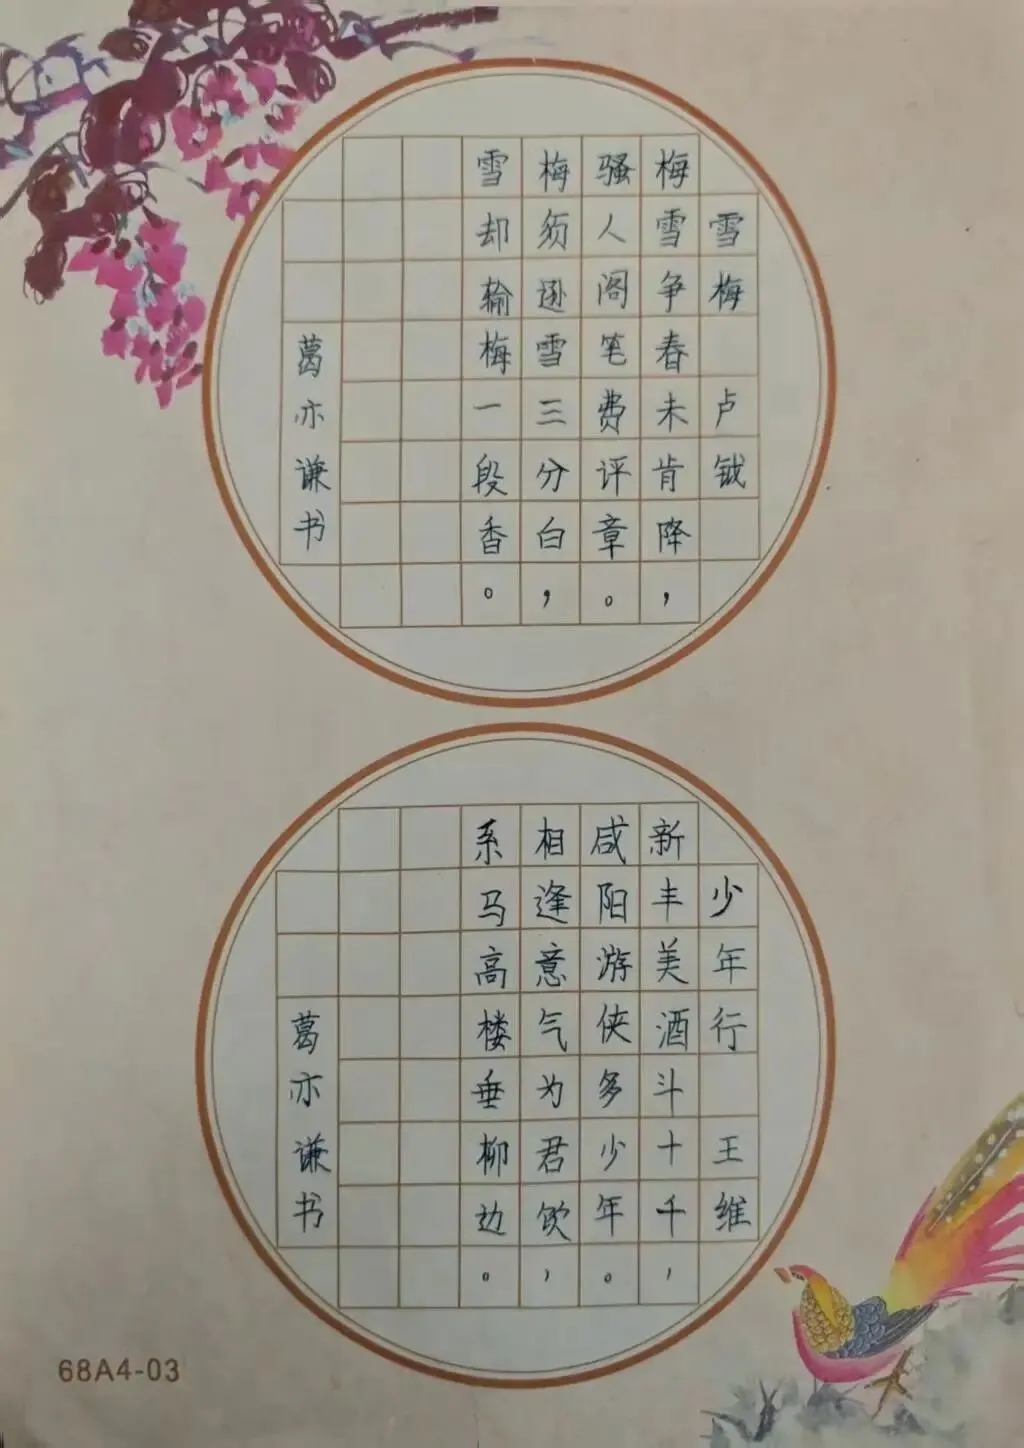 雪梅 卢钺
梅雪争春未肯降，
骚人阁笔费评章。
梅须逊雪三分白，
雪却输梅一段香。
葛亦谦书
少年行 王维
新丰美酒斗十千，
咸阳游侠多少年。
相逢意气为君饮，
系马高楼垂柳边。
葛亦谦书
68A4-03